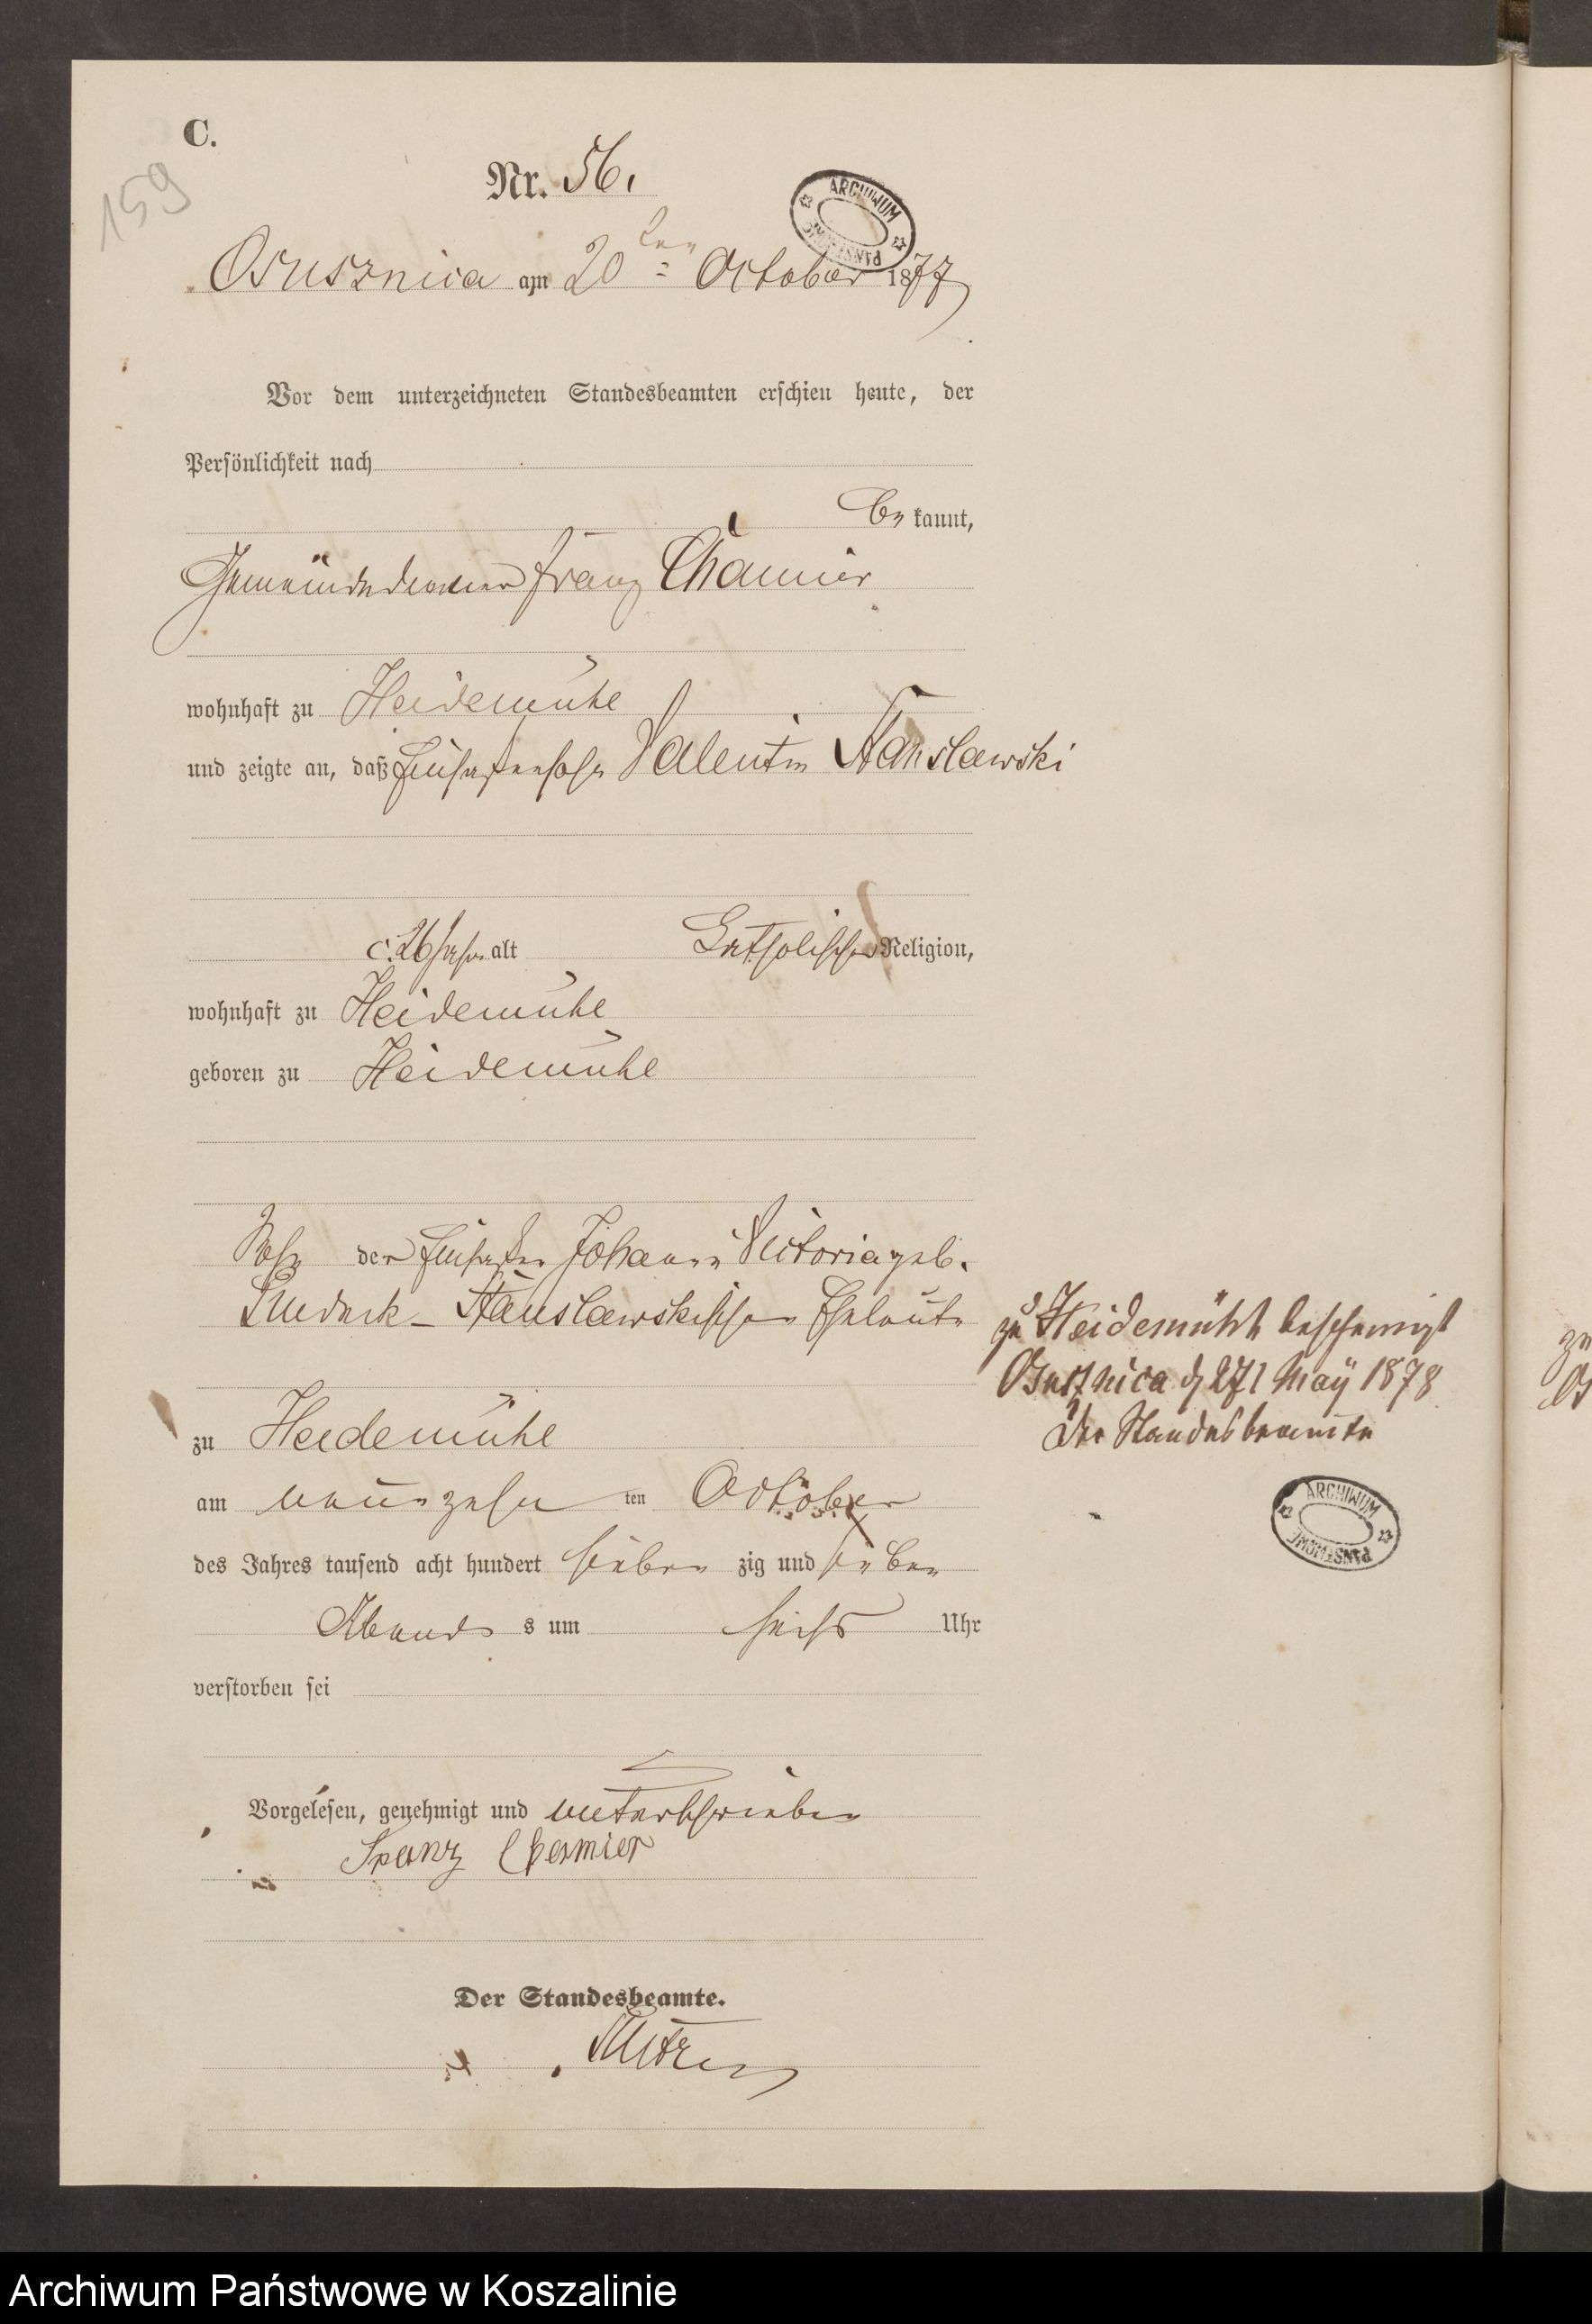 C.
159
Nr. 56.
ARCHIWUM PAŃSTWOWE
Osusznica am 20 ten October 1877
Vor dem unterzeichneten Standesbeamten erschien heute, der
Persönlichkeit nach
be kannt,
Gemeindediener Franz Chamier
wohnhaft zu Heidemühl
und zeigte an, daß Einsassensohn Valentin Stanslawski
c. 26 Jahr alt Katholischer Religion,
wohnhaft zu Heidemühl
geboren zu Heidemühl
Sohn der Einsassen Johann Victoria geb.
Stanslawskischen Eheleute
zu Heidemühl
am neunzehn ten October
des Jahres tausend acht hundert sieben zig und sieben
Abend s um sechs Uhr
verstorben sei
Vorgelesen, genehmigt und unterschrieben
Franz Chamier
Der Standesbeamte.
zu Heidemühle bescheinigt
Osusznica d 27t May 1878
Der Standesbeamte
ARCHIWUM PAŃSTWOWE
Archiwum Państwowe w Koszalinie